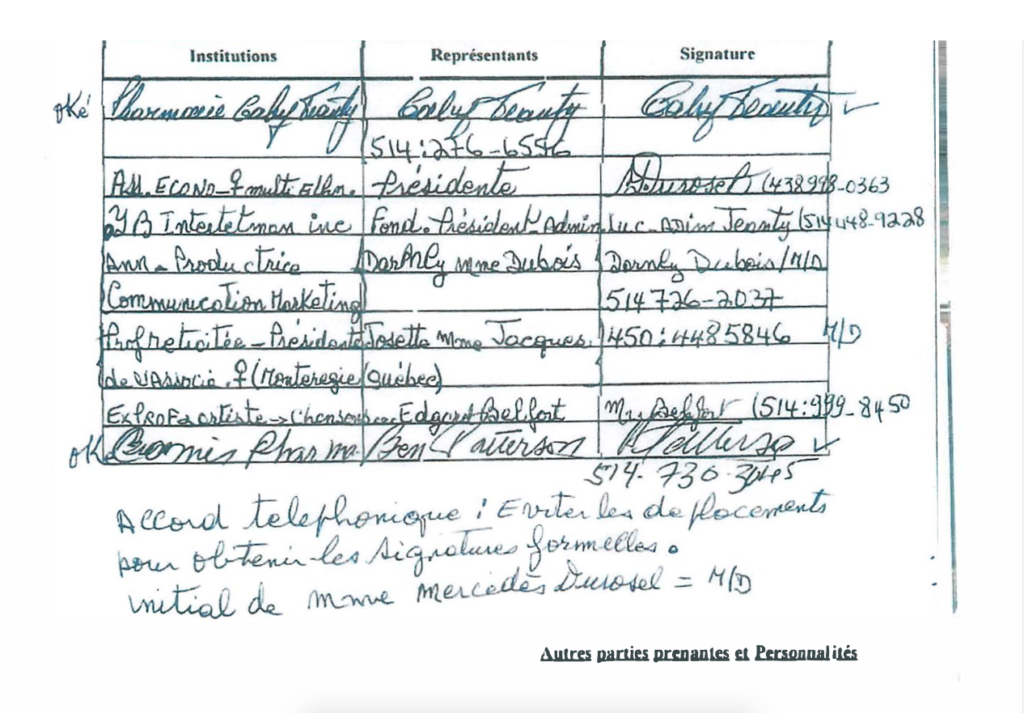 Institutions Représentants Signature
oké Pharmacie Gaby Jeanty Gaby Jeanty Gaby Jeanty ✓
514:276-6556
Ass. ECONO-♀ multi Ethn. Présidente M Durosel (438 998-0363
Inc Fond. Président Admin Luc-ADim Jeanty (514 448-9228
Ann-Productrice Darhly mme Dubois Darnly Dubois/M/D
Communication Marketing 514 726-2037
Présidente Josette Mme Jacques. 450:4485846 M/D
de l'Associa. ♀ (Monteregie Québec)
artiste → Chanson Edgard Belfort Mr. Belfort (514:999-8450
OK Pharma Ben Patterson Patterson ✓
514. 730.3045
Accord telephonique : Eviter les deplacements
pour obtenir les signatures formelles.
initial de Mme Mercedès Durosel = M/D
Autres parties prenantes et Personnalités